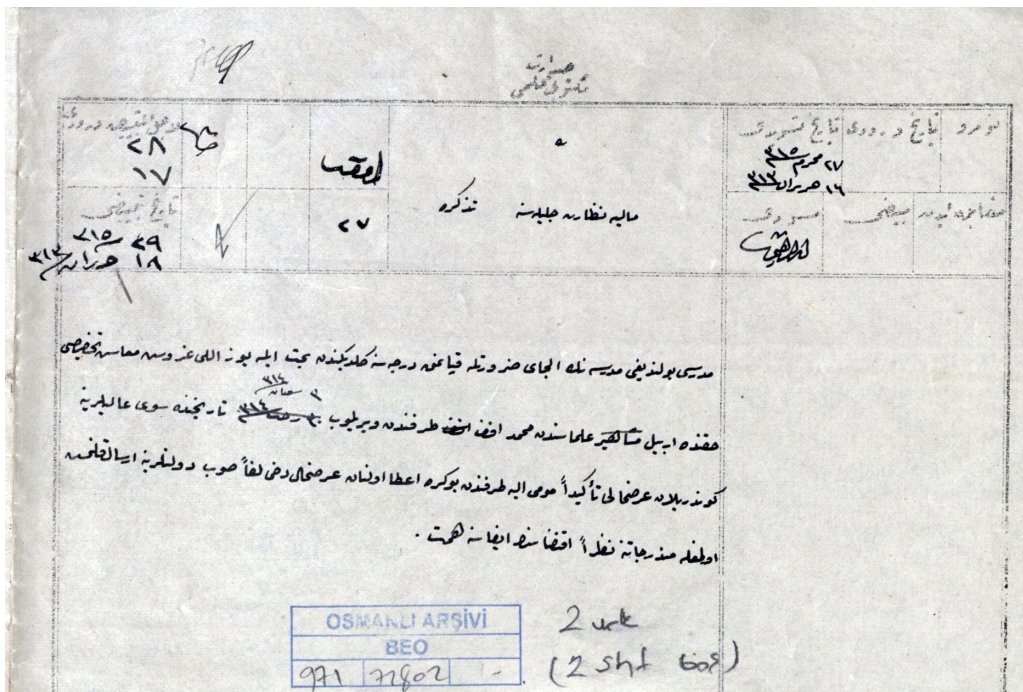 صدارت
مكتوبى قلمى
نومرو
تاريخ ورودى
تاريخ تسويدى
٢٧ محرم ٣١٥
١٦ حزيران ٣١٣
مبيضى
مسودى
ماليه نظارت جليله سنه تذكره
٢٧
٢٨
١٧
تاريخ تبييضى
٢٩ ٣١٥
١٨ حزيران ٣١٣
مدرسى بولنديغى مدرسه نك الجاى ضرورتله درجه سنه كلديكندن بحث ايله يوز اللى غروش معاش تخصيصى
٣ شعبان ٣١٤
حقنده اربيل مشاهير علماسندن محمد افندى طرفندن ويريلوب تاريخنده سوى عاليلرينه
كوندريلان عرضحالى تأكيداً مومى اليه طرفندن بوكره اعطا اولنان عرضحال دخى لفاً صوب دولتلرينه ارسال قلنمش
اولمغله مندرجاتنه نظراً اقتضاسنك ايفاسنه همت .
OSMANLI ARŞİVİ
BEO
971 72802 -
2 vrk
(2 shf boş)